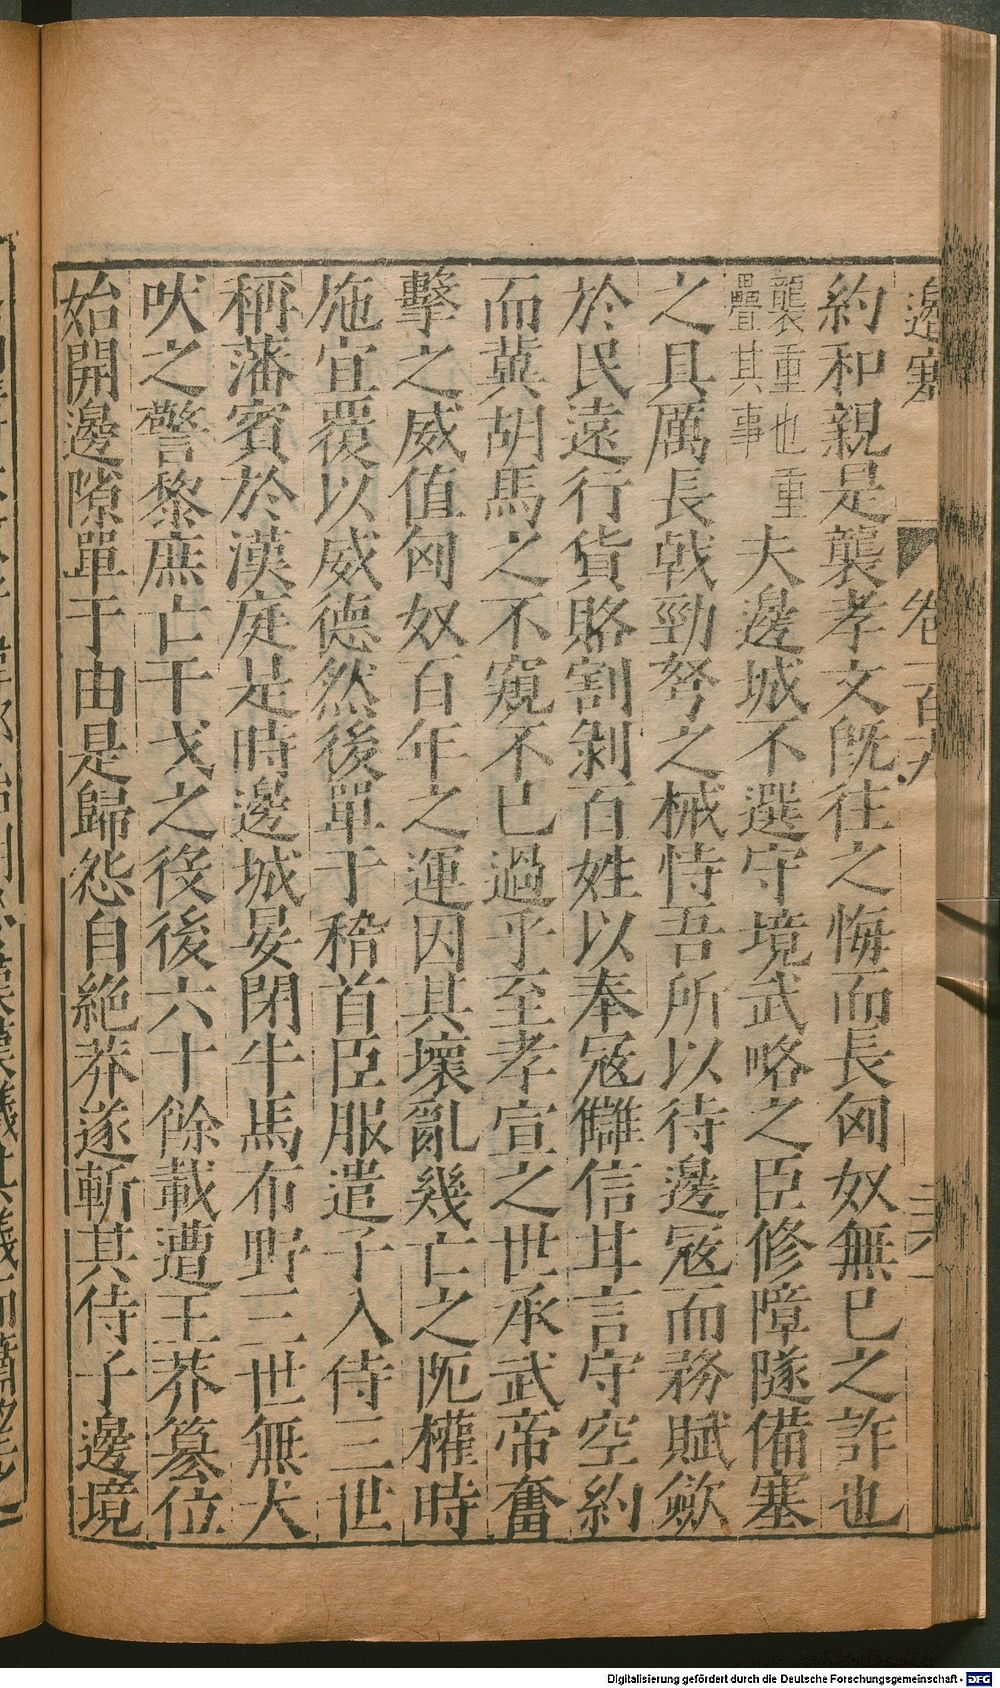 邊塞 卷一百九
約和親是襲孝文旣往之悔而長匈奴無已之詐也
襲重也重
疊其事
夫邊城不選守境武略之臣修障隧備塞
之具厲長戟勁弩之械恃吾所以待邊寇而務賦歛
於民遠行貨賂割剝百姓以奉寇讎信甘言守空約
而冀胡馬之不窺不已過乎至孝宣之世承武帝奮
擊之威值匈奴百年之運因其壞亂幾亡之阨權時
施宜覆以威德然後單于稽首臣服遣子入侍三世
稱藩賓於漢庭是時邊城晏閉牛馬布野三世無犬
吠之警黎庶亡干戈之役後六十餘載遭王莽簒位
始開邊隙單于由是歸怨自絕莽遂斬其侍子邊境
Digitalisierung gefördert durch die Deutsche Forschungsgemeinschaft - DFG